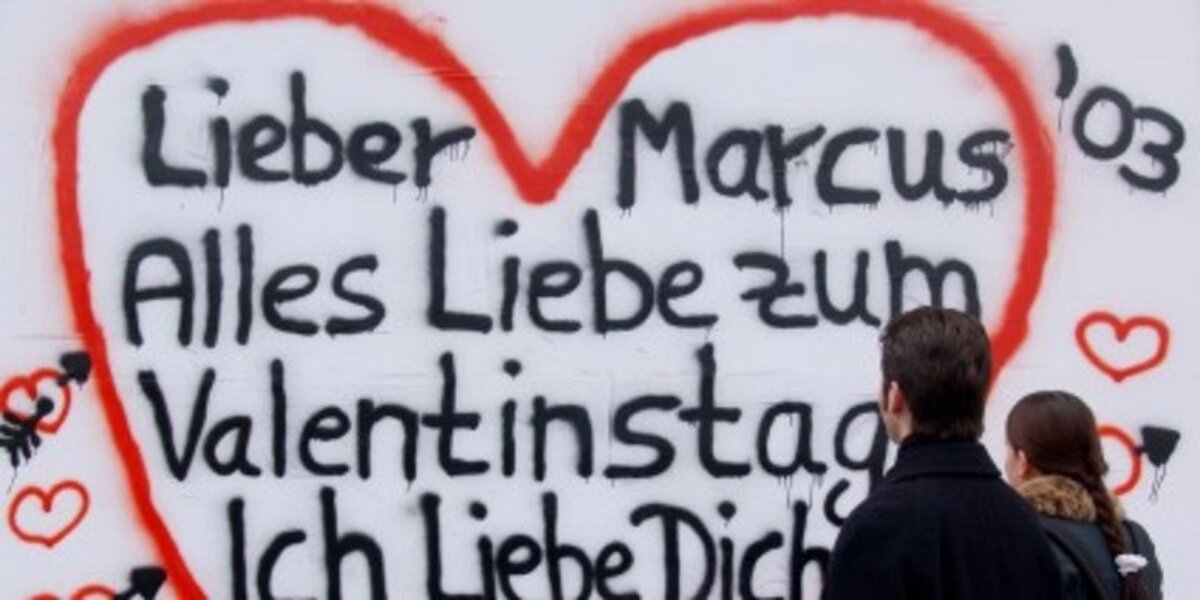 Lieber Marcus '03
Alles Liebe zum
Valentinstag
Ich Liebe Dich